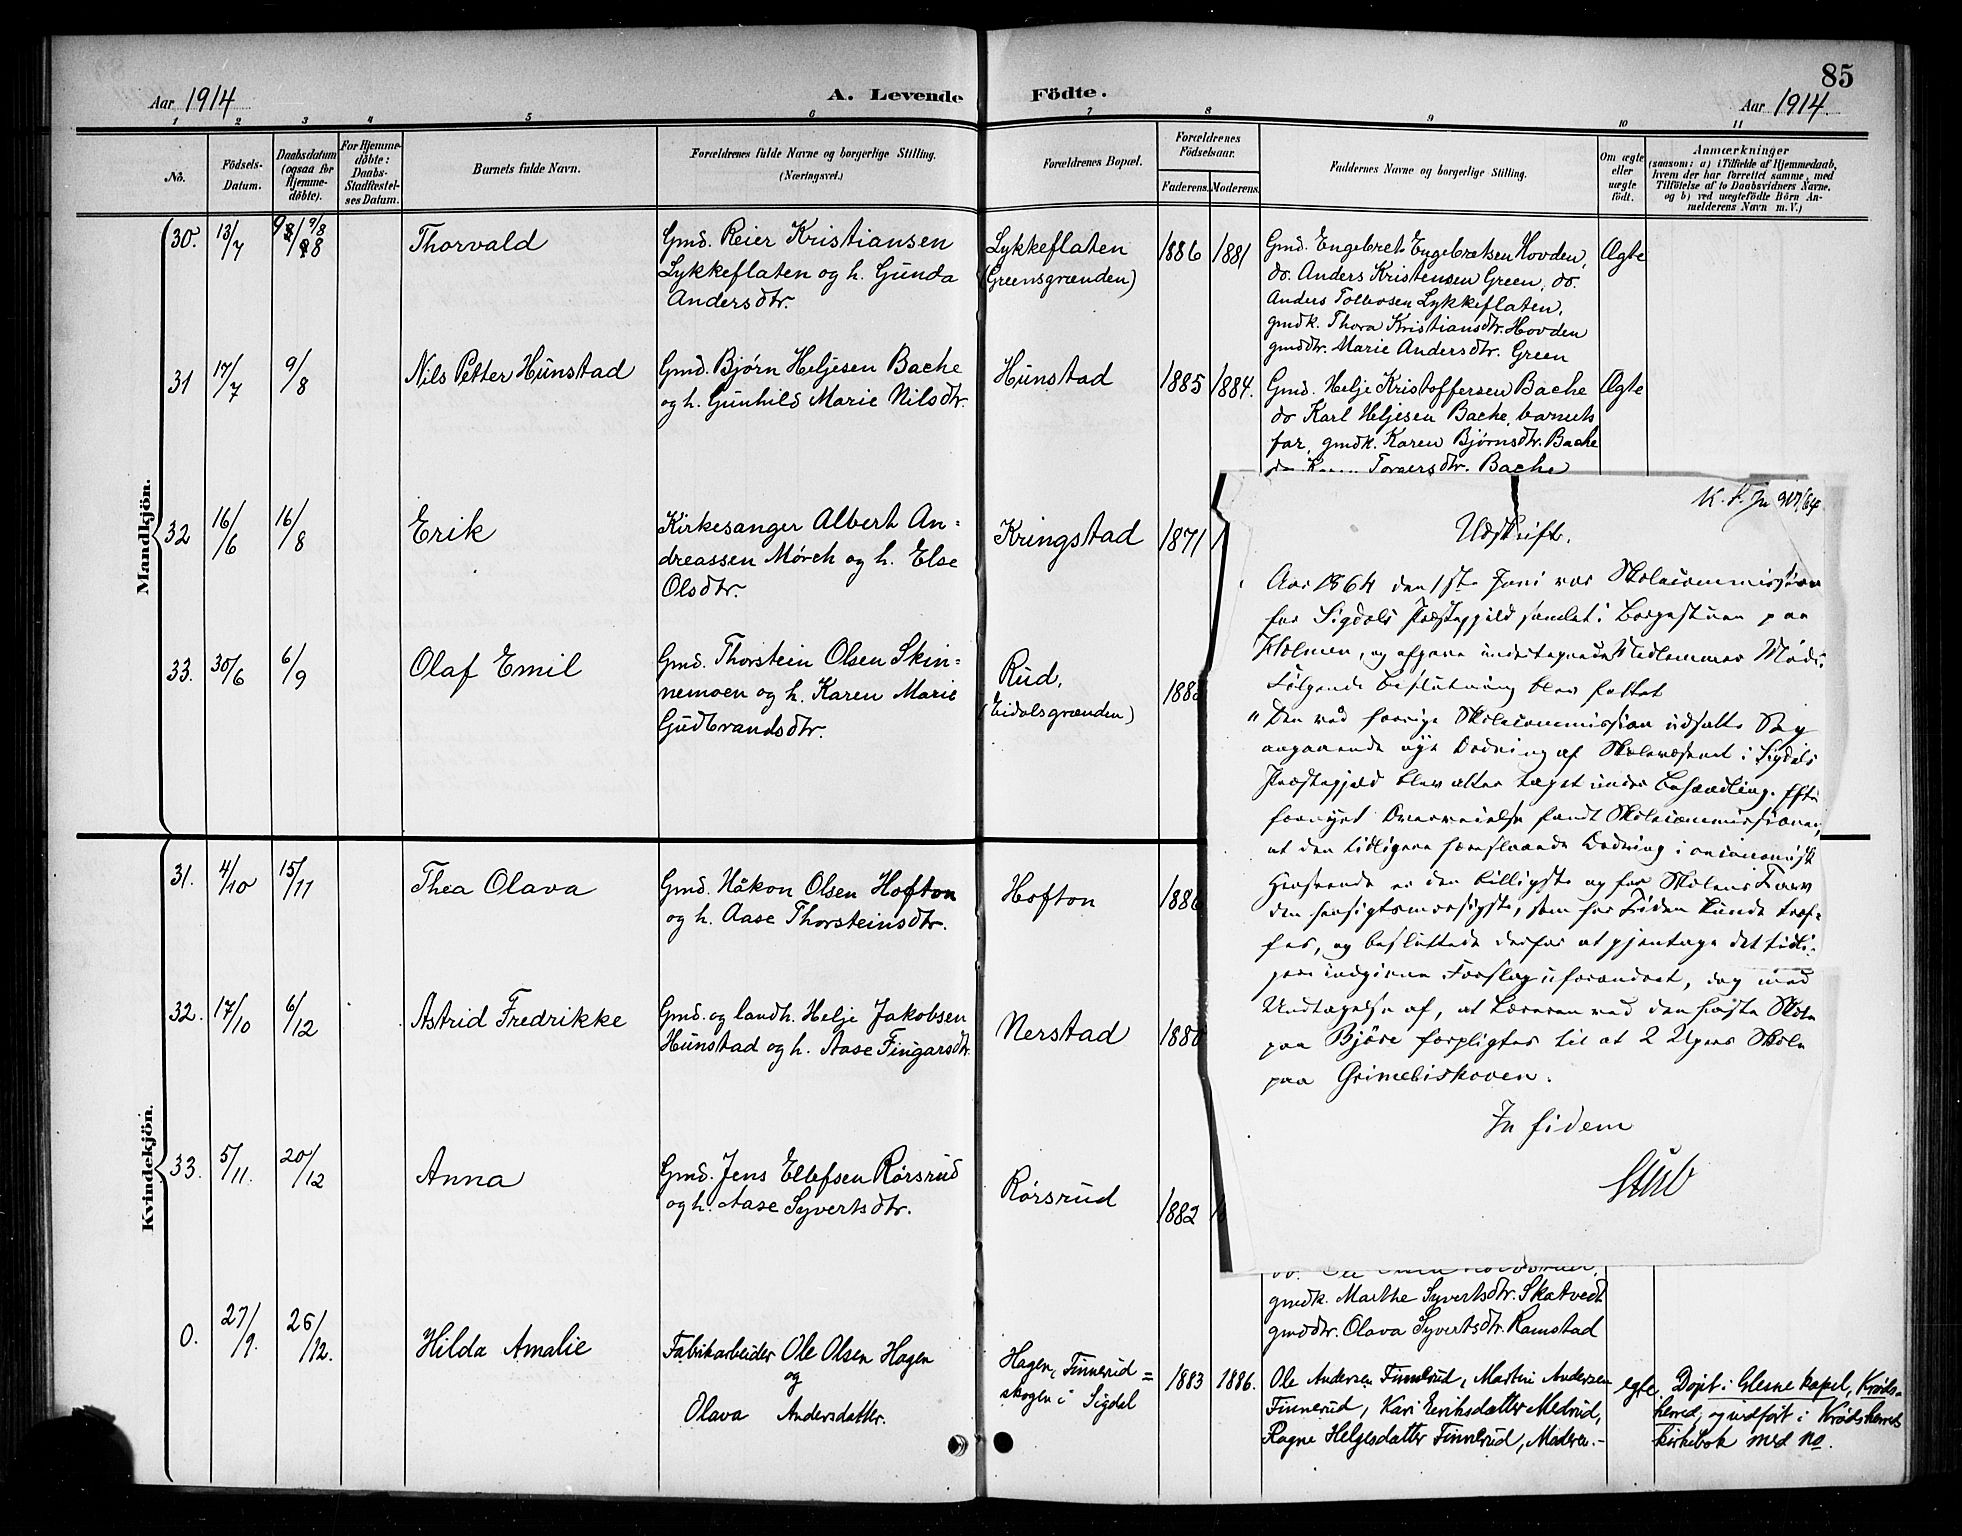 85
Aar 1914
A. Levende Födte.
Aar 1914
1 2 3 4 5 6 7 8 9 10 11
No.
Födsels-
Datum.
Daabsdatum
(ogsaa for
Hjemme-
döbte).
For Hjemme-
döbte:
Daabs-
Stadfæstel-
ses Datum.
Barnets fulde Navn.
Forældrenes fulde Navne og borgerlige Stilling.
(Næringsvei.)
Forældrenes Bopæl.
Forældrenes
Födselsaar.
Faderens. Moderens.
Faddernes Navne og borgerlige Stilling.
Om ægte
eller
uægte
födt.
Anmærkninger
(saasom: a) i Tilfælde af Hjemmedaab,
hvem der har forrettet samme, med
Tilföielse af to Daabsvidners Navne.
og b) ved uægtefödte Börn An-
melderens Navn m. V.)
Mandkjön.
30. 13/7 9/8
Thorvald
Gmd. Reier Kristiansen
Lykkeflaten og h. Gunda
Andersdtr.
Lykkeflaten
(Greensgrænden)
1886 1881
Gmd. Engebret Engebretsen Hovden,
do. Anders Kristensen Green, do.
Anders Tollevsen Lykkeflaten,
gmdk. Thora Kristiansdtr. Hovden
gmddtr. Marie Andersdtr. Green
Ægte
31 17/7 9/8
Nils Petter Hunstad
Gmd. Bjørn Heljesen Bache
og h. Gunhild Marie Nilsdtr.
Hunstad
1885 1884.
Gmd. Helje Kristoffersen Bache
do Karl Heljesen Bache, barnets
far, gmdk. Karen Bjørnsdtr. Bache
Torgersdtr. Bache
Ægte
32 16/6 16/8
Erik
Kirkesanger Albert An=
dreassen Mørch og h. Else
Olsdtr.
Kringstad
1871
33. 30/6 6/9
Olaf Emil
Gmd. Thorstein Olsen Skin=
nemoen og h. Karen Marie
Gudbrandsdtr.
Rud,
(Eidalsgrænden)
188
Kvindekjön.
31. 4/10 15/11
Thea Olava
Gmd. Håkon Olsen Hofton
og h. Aase Thorsteinsdtr.
Hofton
1886
32. 17/10 6/12
Astrid Fredrikke
Gmd. og landh. Helje Jakobsen
Hunstad og h. Aase Fingarsdtr.
Nerstad
188
33. 5/11. 20/12
Anna
Gmd. Jens Ellefsen Rørsrud
og h. Aase Syvertsdtr.
Rørsrud
1882
gmdk. Marthe Syvertsdtr. Skatvedt
gmddtr. Olava Syvertsdtr. Ramstad
0. 27/9. 26/12.
Hilda Amalie
Fabrikarbeider Ole Olsen Hagen
og
Olava Andersdatter.
Hagen, Finnerud=
skogen i Sigdal
1883 1886.
Ole Andersen Finnerud, Martin Andersen
Finnerud, Kari Eriksdatter Medrud,
Ragne Helgesdatter Finnerud, Moderen.-
egte
Døpt i Glesne kapel, Krøds=
herred, og indført i Krødsherreds
kirkebok med no.
Udskrift.
Aar 1864 den 1ste Juni var Skolecommissionen
for Sigdals Præstegjeld samlet i Borgestuen paa
Holmen, og afgave undertegnede Medlemmer Møde.
Følgende Beslutning blev fattet
"Den ved forrige Skolecommission udsatte Sag
angaaende nye Ordning af Skolevæsenet i Sigdals
Præstegjeld blev atter taget under Behandling. Efter
fornyet Overveielse fandt Skolecommissionen,
at den tidligere foreslaaede Ordning i oeconomisk
Henseende er den billigste og for Skolens Tarv
den hensigtsmæssigste, som for Tiden kunde træf-
fes, og besluttede derfor at gjentage det tidli-
gere indgivne Forslag uforandret, dog med
Undtagelse af, at Læreren ved den faste Skole
paa Bjøre forpligtes til at 2 Ugers Skole
paa Grimeliskoven.
In fidem
Stub